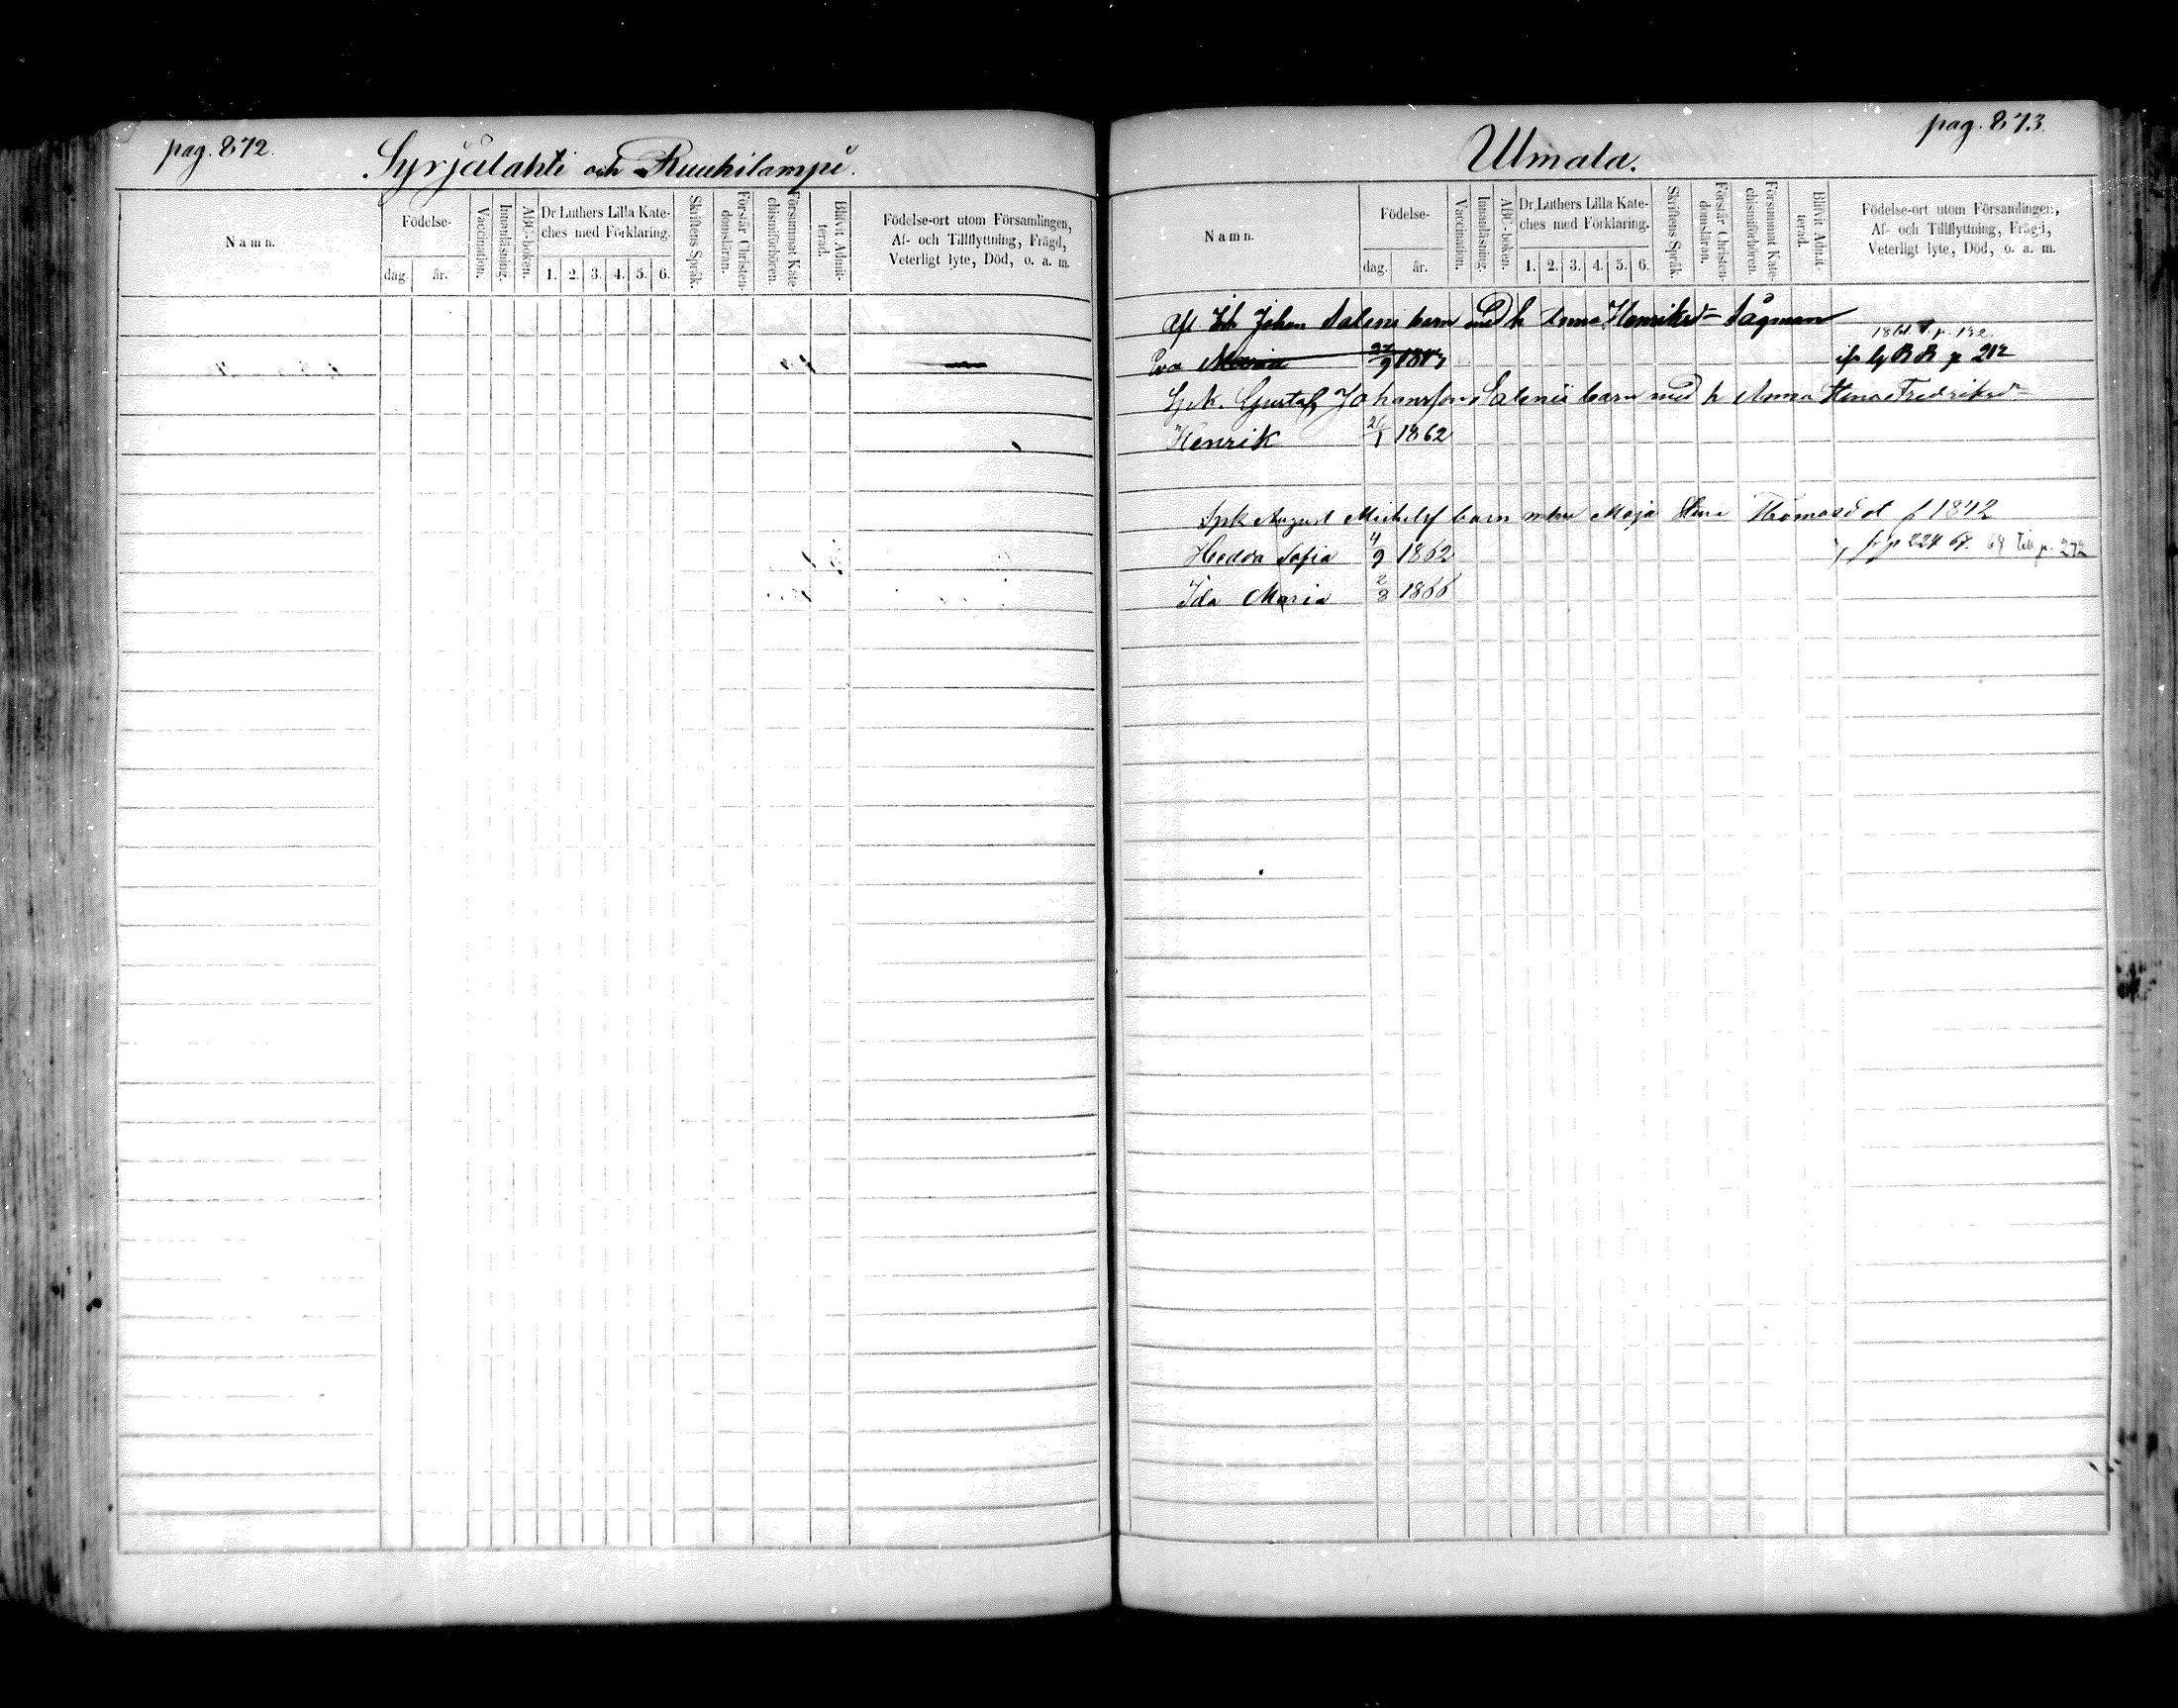 pag. 872.
Syrjälahti och Ruuhilampi.
Namn.
Födelse-
dag.
år.
Vaccination.
Innanläsning.
ABC-boken.
Dr Luthers Lilla Kate-
ches med Förklaring.
1. 2. 3. 4. 5. 6.
Skriftens Språk.
Förstår Christen-
domsläran.
Försummat Kate-
chismiförhören.
Blifvit Admit-
terad.
Födelse-ort utom Församlingen,
Af- och Tillflyttning, Frägd,
Veterligt lyte, Död, o. a. m.
pag. 873.
Ulmala.
Namn.
Födelse-
dag.
år.
Vaccination.
Innanläsning.
ABC-boken.
Dr Luthers Lilla Kate-
ches med Förklaring.
1. 2. 3. 4. 5. 6.
Skriftens Språk.
Förstår Christen-
domsläran.
Försummat Kate-
chismiförhören.
Blifvit Admit-
terad.
Födelse-ort utom Församlingen,
Af- och Tillflyttning, Frägd,
Veterligt lyte, Död, o. a. m.
Johan Saleni barn med h Anna Henriksd Sågman
Eva Maria 9 p 212
Spk. Gustaf Johansson Salenii barn med h Anna Fredriksd
Henrik 26/1 1862
Spk August Michelsf barn m hu Maja Stina Thomasdot f 1842
Hedda Sofia 4/9 1862 p 224 67. 69 till p. 272
Ida Maria 2/8 1866